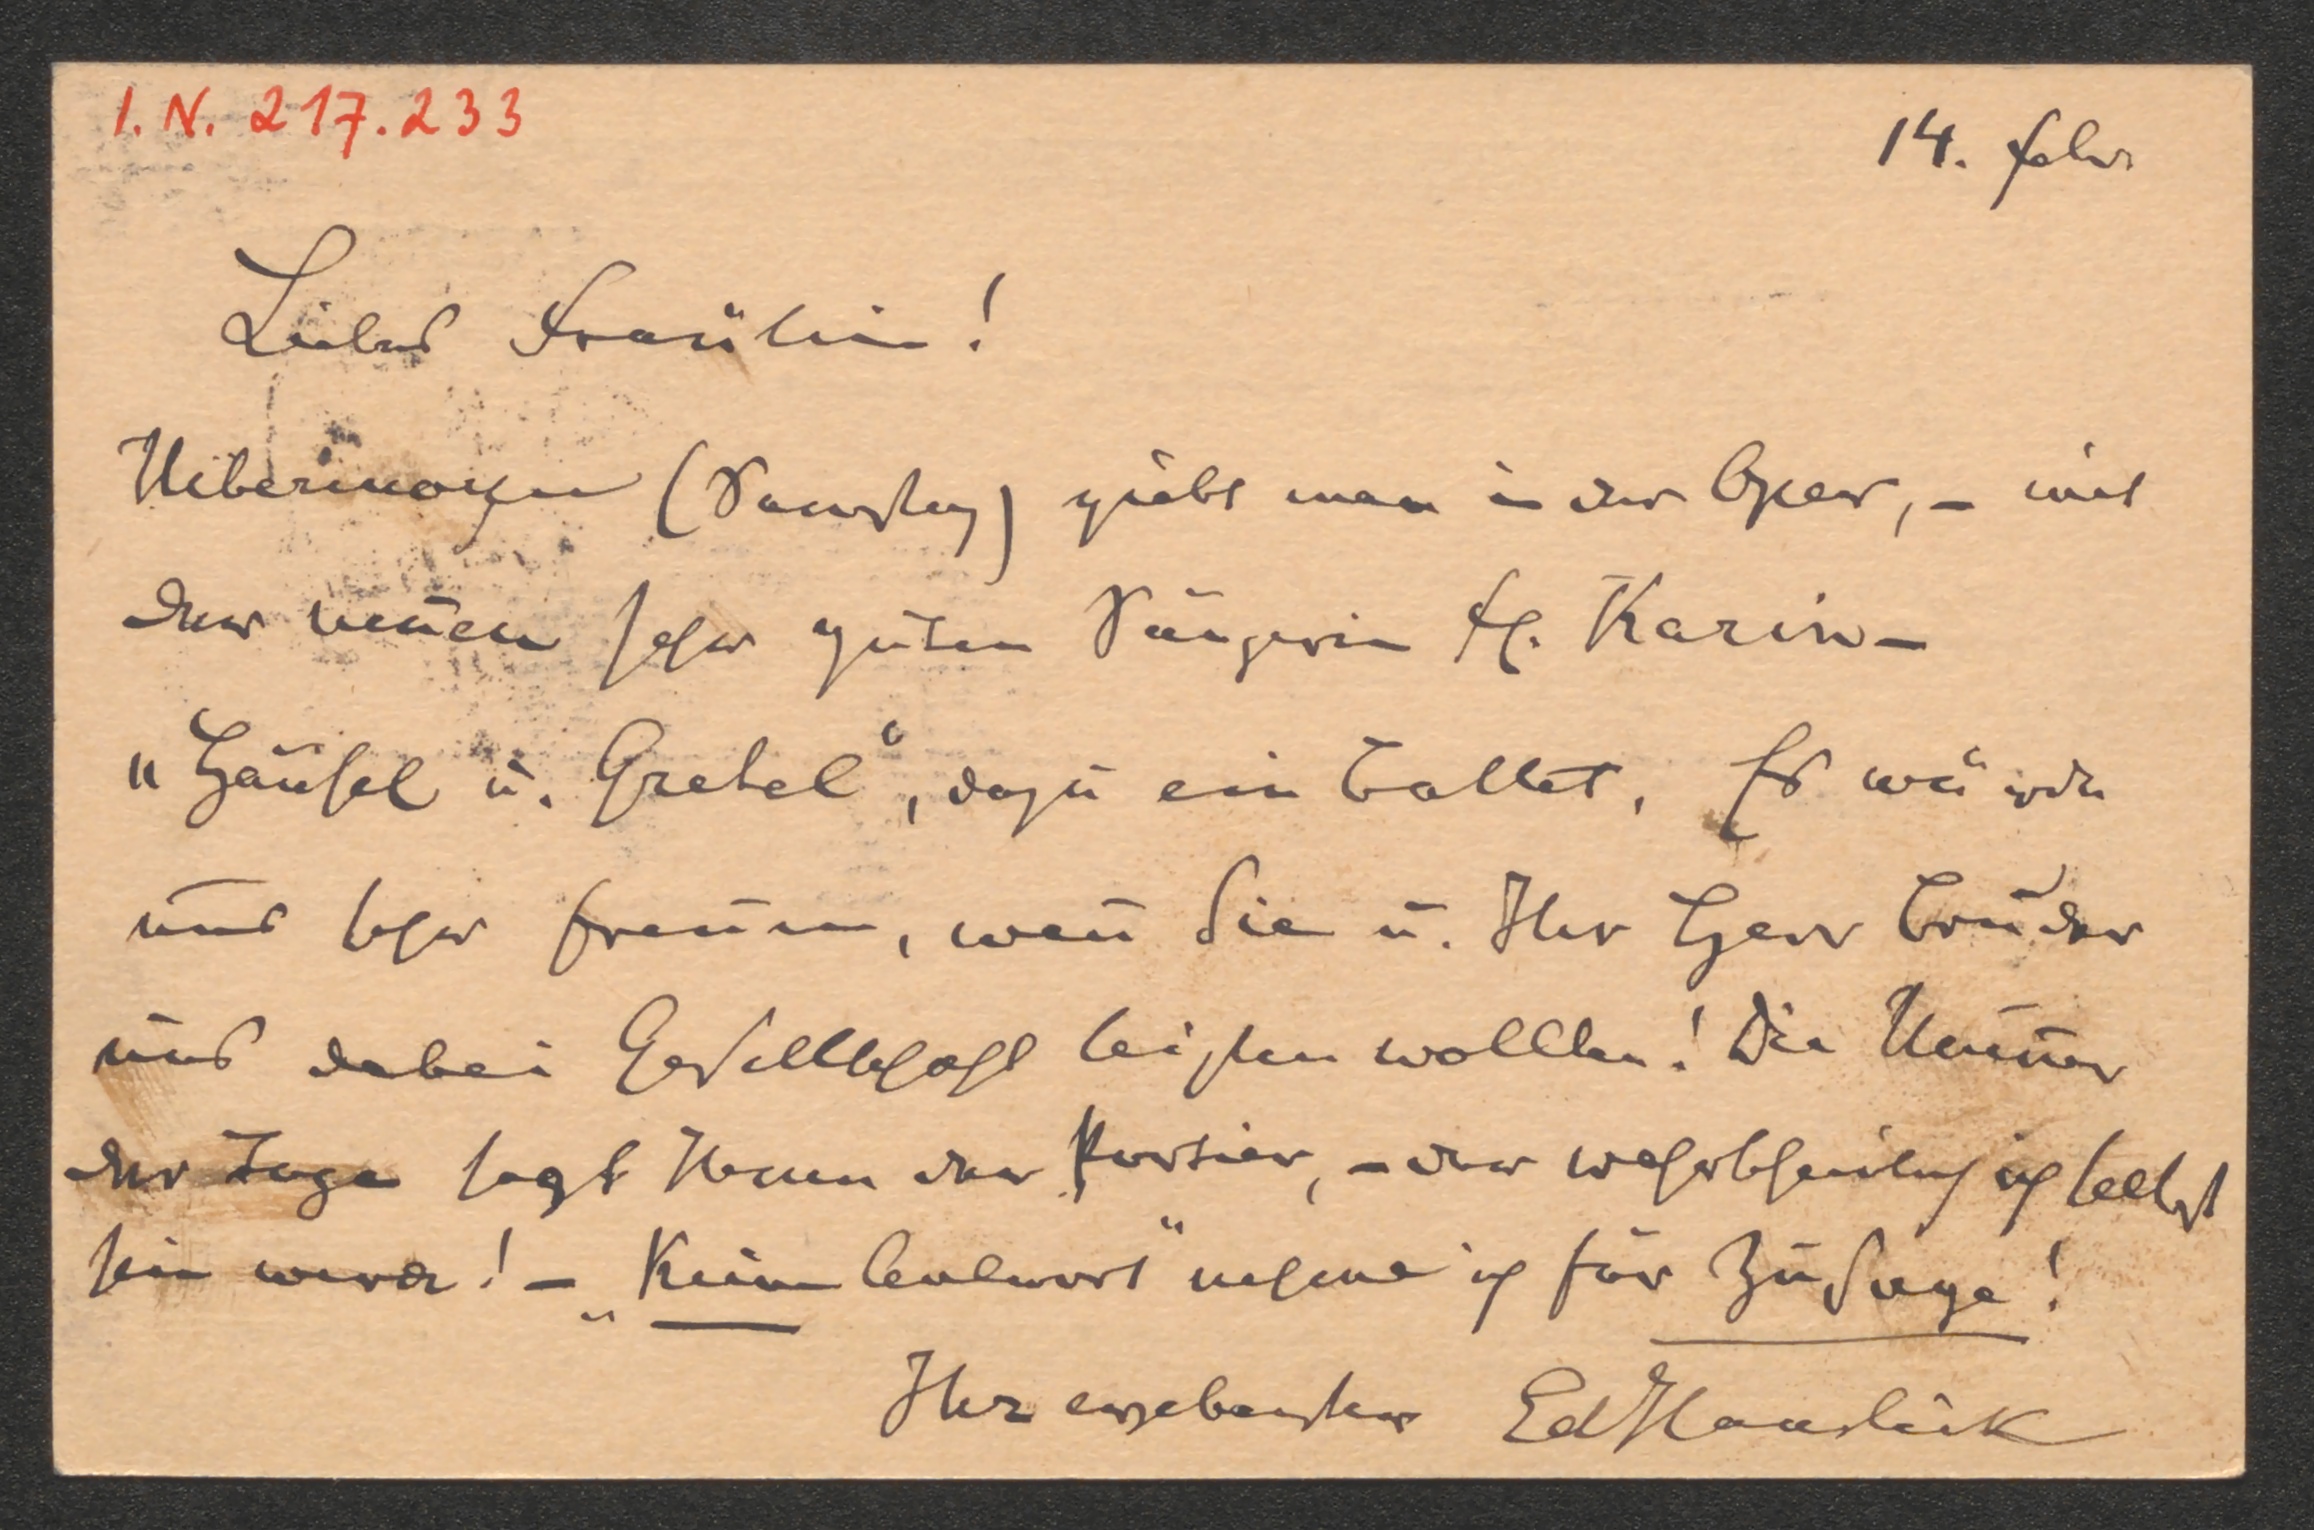 I. N. 217.233
14. Febr
Liebes Fräulein!
Uibermorgen (Samstag) giebt man in der Oper, – mit
der neuen sehr guten Sängerin Frl. Karin –
„Hänsel u. Gretel", dazu ein Ballet. Es würde
uns sehr freuen, wen̄ Sie u. Ihr Herr Bruder
uns dabei Gesellschaft leisten wollten! Die Num̄er
der Loge sagt Ihnen der Portier, – der wahrscheinlich ich selbst
sein werde! – „Keine Antwort" nehme ich für Zusage!
Ihr ergebenster EdHanslick